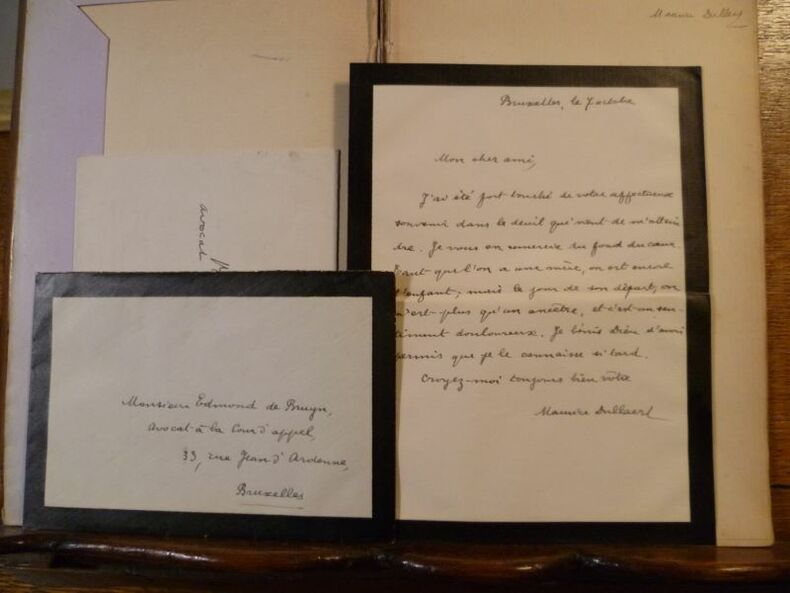 Maurice Dullaert
avocat
Bruxelles, le 7 octobre
Mon cher ami,
J'ai été fort touché de votre affectueux
souvenir dans le deuil qui vient de m'attein
dre. Je vous en remercie du fond du cœur.
Tant que l'on a une mère, on est encore
l'enfant; mais le jour de son départ, on
n'est plus qu'un ancêtre, et c'est un sen-
timent douloureux. Je bénis Dieu d'avoir
permis que je le connaisse si tard.
Croyez-moi toujours bien vôtre
Maurice Dullaert
Monsieur Edmond de Bruyn,
Avocat à la Cour d'appel,
33, rue Jean d'Ardenne,
Bruxelles